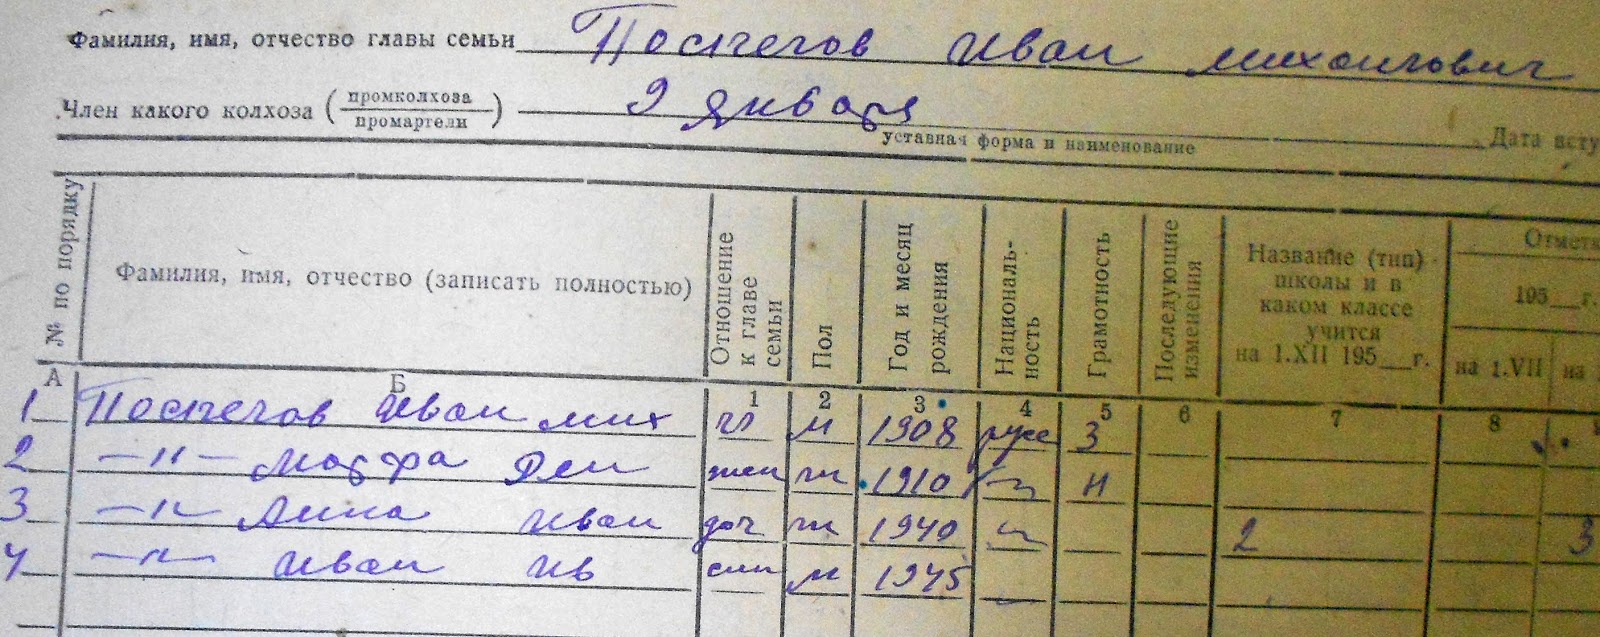 Фамилия, имя, отчество главы семьи Поспегов Иван Михайлович
Член какого колхоза (промколхоза / промартели) 9 Января
уставная форма и наименование Дата всту
№ по порядку
Фамилия, имя, отчество (записать полностью)
Отношение к главе семьи
Пол
Год и месяц рождения
Националь-
ность
Грамотность
Последующие изменения
Название (тип) школы и в каком классе учится на 1.XII 195__г.
Отметк
195__г.
на 1.VII на
А Б 1 2 3 4 5 6 7 8 9
1 Поспегов Иван Мих гл м 1908 русс 3
2 —"— Марфа Дем жен ж 1910 —"— н
3 —"— Анна Иван доч ж 1940 —"— 2 3
4 —"— Иван Ив сын м 1945